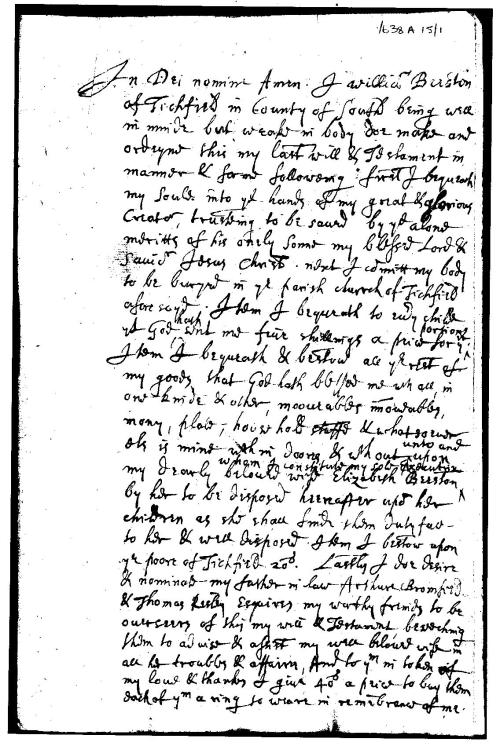 1638 A 15/1
In Dei nomine Amen. I Willia Beeston
of Tichfeild in County of South being well
in minde but weake in body doe make and
ordeyne this my last will & Testament in
manner & forme following: first I bequeath
my Soule into ye hands of my great & glorious
Creator, trusting to be saved by ye alone
meritts of his onely Sonne my blessed Lord &
Savior Jesus Christ. next I comitt my body
to be buryed in ye parish church of Tichfeild
aforesayd. Item I bequeath to every child
yt God hath sent me five shillings a piece for yr portions
Item I bequeath & bestow all ye rest of
my goods that God hath blessed me wth all, in
one kinde & other, moveables imoveables,
mony, plate, houshold stuffe & whatsoever
els is mine wthin doores & wthout unto and upon
my dearly beloved wife Elizabeth Beeston
whom I constitute my sole Executrix
by her to be disposed hereafter upo her
children as she shall finde them dutyfull
to her & well disposed. Item I bestow upon
ye poore of Tichfeild 20s. Lastly I doe desire
& nominate my father in law Arthure Bromfeild
& Thomas Esquires my worthy frends to be
overseers of this my will & Testament beseeching
them to advise & assist my well beloved wife in
all her troubles & affaires, And to ym in token of
my love & thanks I give 40s a piece to buy them
each of ym a ring to weare in remembrance of me.